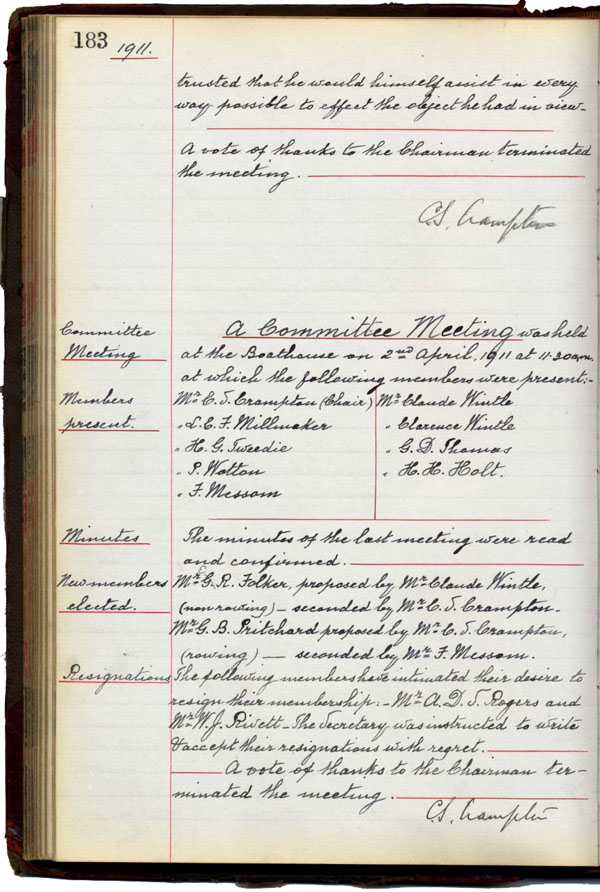 183 1911.
trusted that he would himself assist in every
way possible to effect the object he had in view.
A vote of thanks to the Chairman terminated
the meeting.
C.S. Crampton
Committee Meeting
A Committee Meeting was held
at the Boathouse on 2nd April, 1911 at 11.30am.
at which the following members were present:-
Members present.
Mr. C.S. Crampton (Chair) Mr. Claude Wintle
" L.C.F. Millmaker " Clarence Wintle
" H.G. Tweedie " G.D. Thomas
" P. Wotton " H.H. Holt.
" F. Messom
Minutes
The minutes of the last meeting were read
and confirmed.
New members elected.
Mr. G.R. Folker, proposed by Mr. Claude Wintle,
(non rowing) — seconded by Mr. C.S. Crampton.
Mr. G.B. Pritchard proposed by Mr. C.S. Crampton,
(rowing) — seconded by Mr. F. Messom.
Resignations
The following members have intimated their desire to
resign their membership:- Mr. A.D.S. Rogers and
Mr. W.J. Rivett - The Secretary was instructed to write
& accept their resignations with regret.
A vote of thanks to the Chairman ter-
minated the meeting.
C.S. Crampton